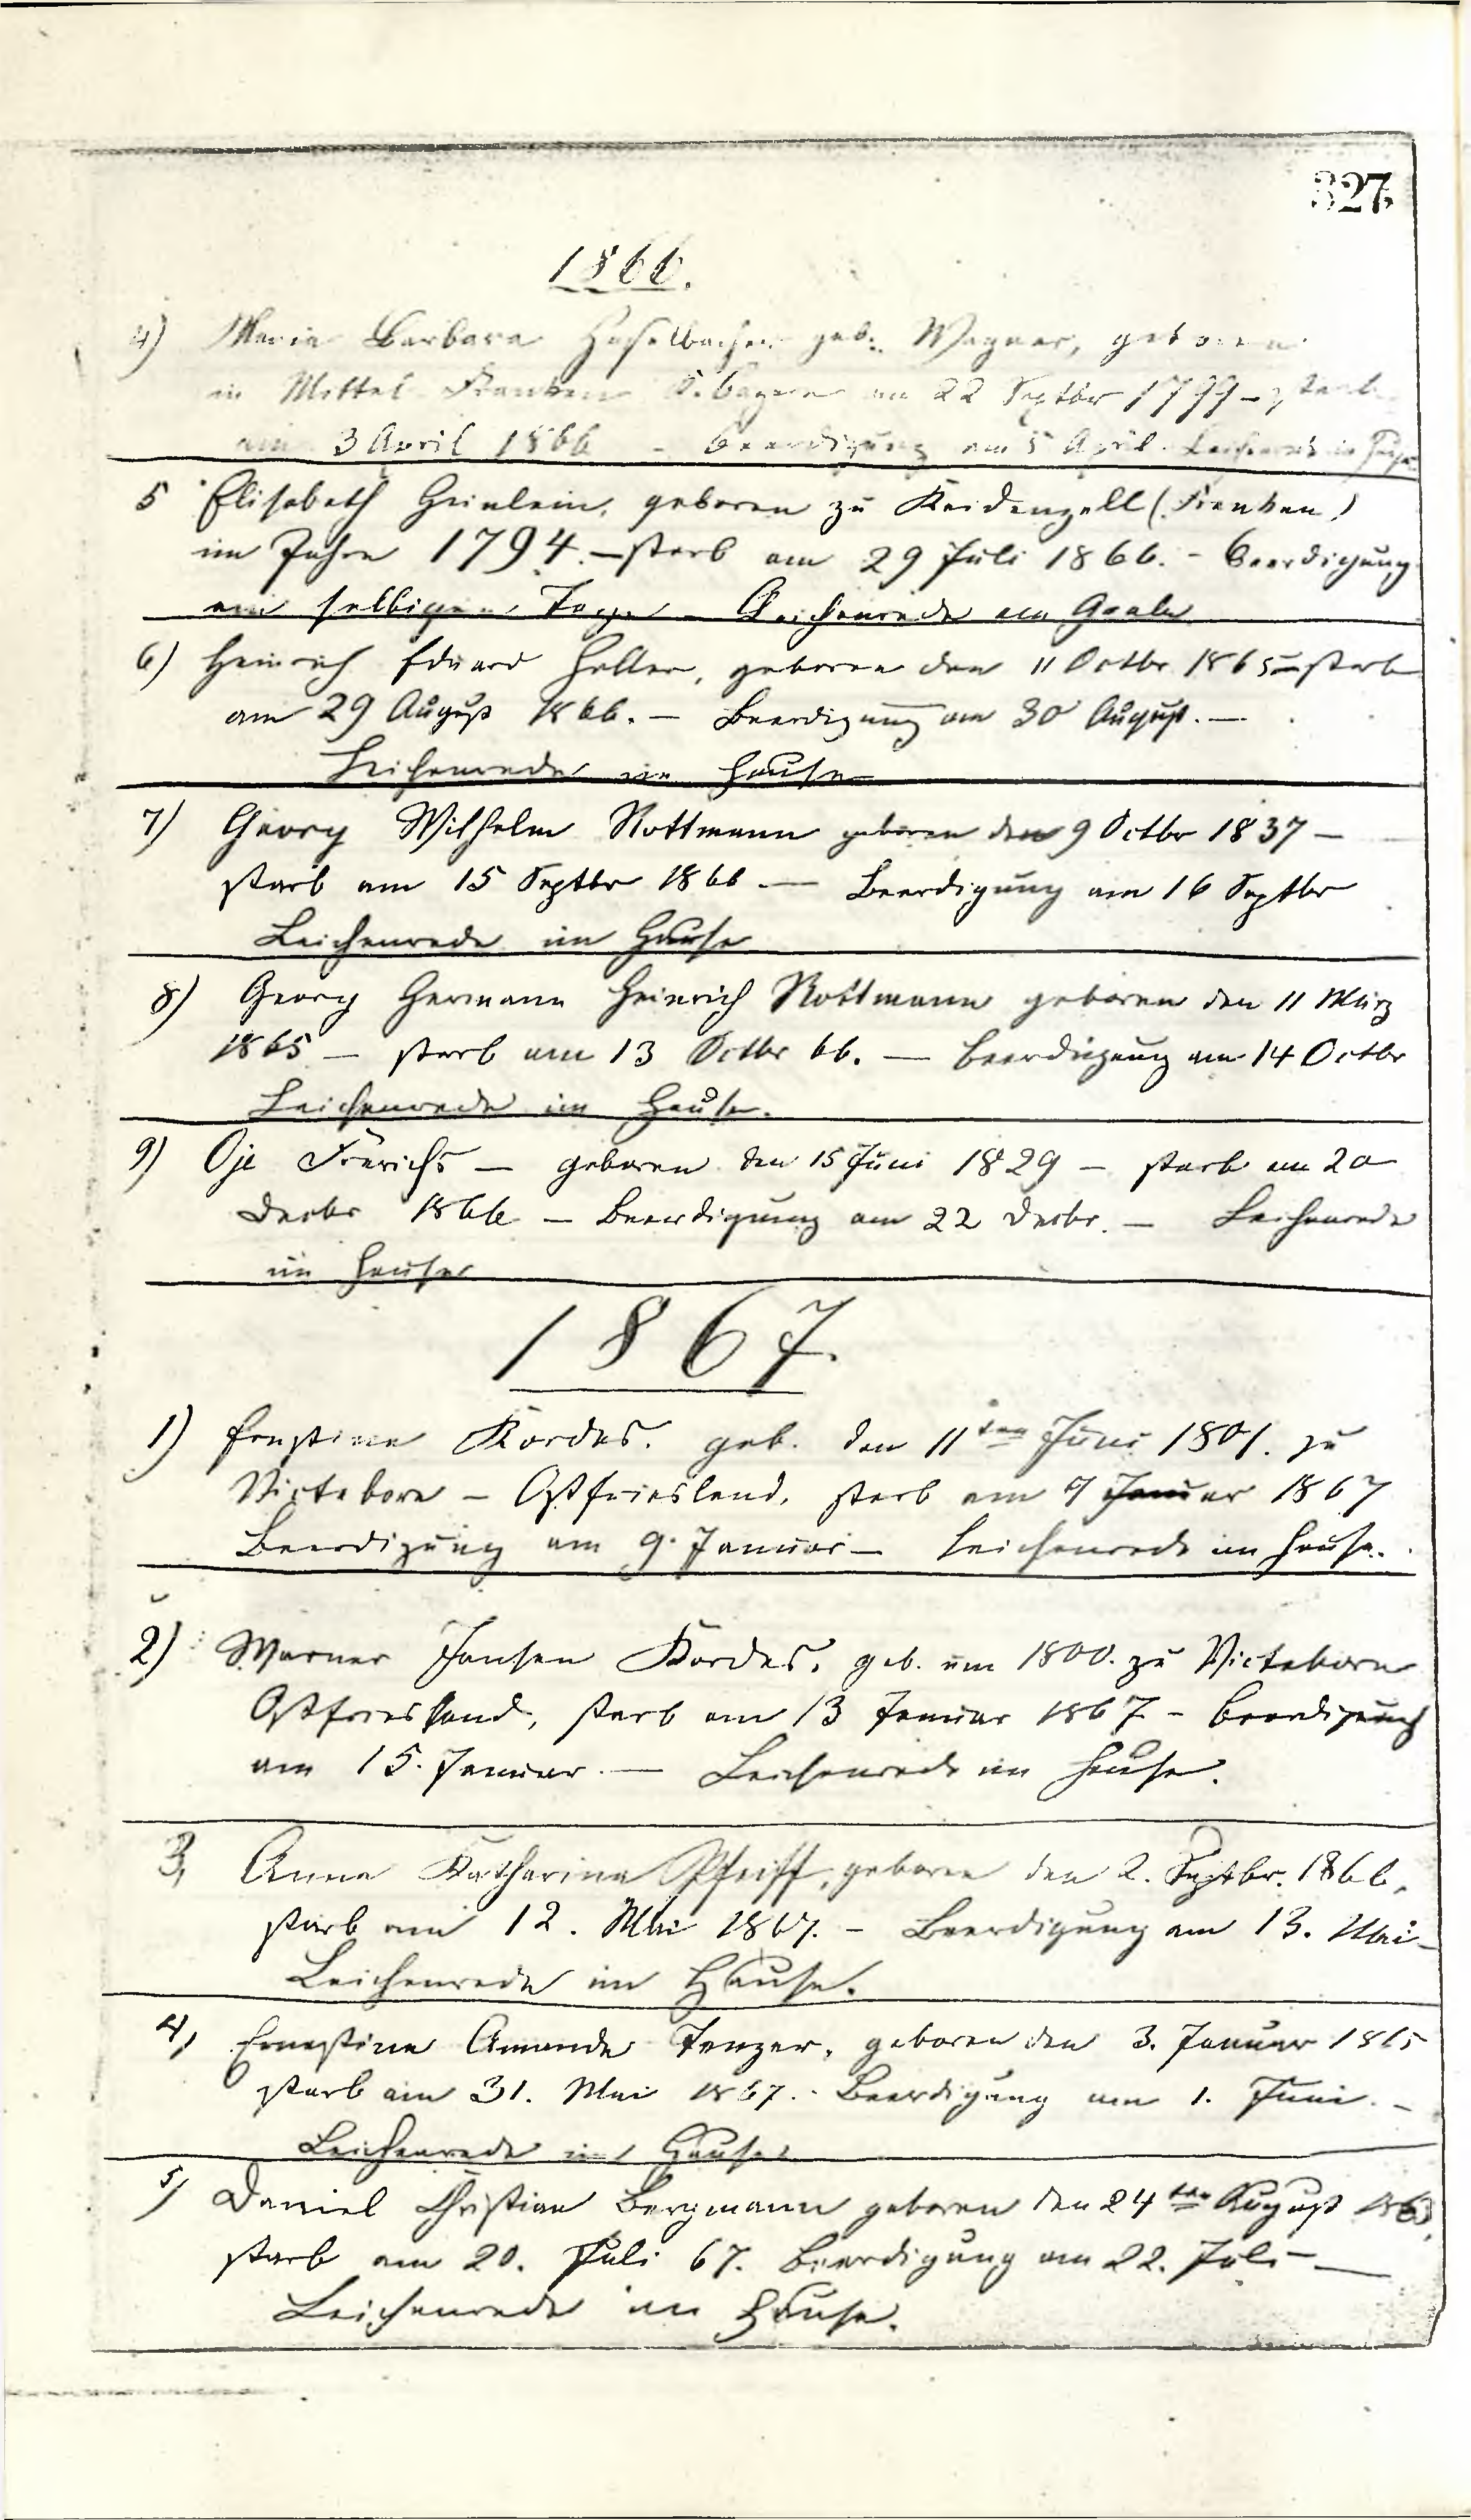 327
1866.
4) Maria Barbara Haselbacher geb. Wagner, geboren
in Mittel Franken K. Bayern am 22 Septbr 1799 – starb
am 3 April 1866 – Beerdigung am 5 April. Leichenrede im
5 Elisabeth Heinlein, geboren zu Keidenzell (Franken)
im Jahre 1794. – starb am 29 Juli 1866. – Beerdigung
am selbigen Tage – Leichenrede am Grabe
6) Heinrich Eduard Heller, geboren den 11 Octbr 1865 – starb
am 29 August 1866. – Beerdigung am 30 August. –
Leichenrede im Hause
7) Georg Wilhelm Rottmann geboren den 9 Octbr 1837 –
starb am 15 Septbr 1866 – Beerdigung am 16 Septbr
Leichenrede im Hause
8) Georg Hermann Heinrich Rottmann geboren den 11 März
1865 – starb am 13 Octbr 66. – Beerdigung am 14 Octbr
Leichenrede im Hause.
9) Oje Frerichs – geboren den 15 Juni 1829 – starb am 20
Decbr 1866 – Beerdigung am 22 Decbr. – Leichenrede
im Hause
1867.
1) Ernstine Kordes. geb. den 11ten Juni 1801. zu
Victebore – Ostfriesland, starb am 7 Januar 1867
Beerdigung am 9. Januar – Leichenrede im Hause.
2) Warner Jansen Kordes, geb. um 1800. zu Victeborn
Ostfriesland, starb am 13 Januar 1867 – Beerdigung
am 15. Januar. – Leichenrede im Hause.
3, Anna Katharina Pfeiff, geboren den 2. Septbr. 1866,
starb am 12. Mai 1867. – Beerdigung am 13. Mai –
Leichenrede im Hause.
4, Ernestine Amanda Tenzer, geboren den 3. Januar 1865
starb am 31. Mai 1867. – Beerdigung am 1. Juni. –
Leichenrede im Hause
5) Daniel Christian Bergmann geboren den 24ten August
starb am 20. Juli 67. Beerdigung am 22. Juli –
Leichenrede im Hause.